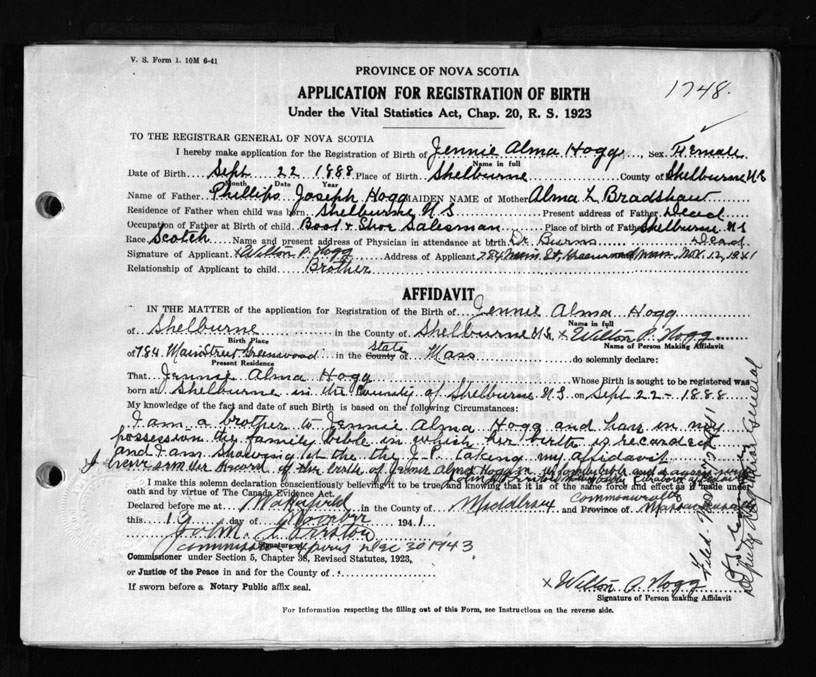 V. S. Form 1. 10M 6-41
1748.
PROVINCE OF NOVA SCOTIA
APPLICATION FOR REGISTRATION OF BIRTH
Under the Vital Statistics Act, Chap. 20, R. S. 1923
TO THE REGISTRAR GENERAL OF NOVA SCOTIA
I hereby make application for the Registration of Birth of Jennie Alma Hogg, Sex Female
Name in full
Date of Birth Sept 22 1888 Place of Birth Shelburne County of Shelburne N S
Month Date Year
Name of Father Phillips Joseph Hogg MAIDEN NAME of Mother Alma L Bradshaw
Residence of Father when child was born Shelburne N S Present address of Father Dead
Occupation of Father at Birth of child Boot & Shoe Salesman Place of birth of Father Shelburne N S
Race Scotch Name and present address of Physician in attendance at birth Dr Burns Dead
Signature of Applicant x Wilton P. Hogg Address of Applicant 784 Main St, Greenwood Mass. Nov. 12, 1941
Relationship of Applicant to child Brother
AFFIDAVIT
IN THE MATTER of the application for Registration of the Birth of Jennie Alma Hogg
Name in full
of Shelburne in the County of Shelburne N S, x Wilton P. Hogg
Birth Place Name of Person Making Affidavit
of 784 Main Street Greenwood in the County of State Mass do solemnly declare:
Present Residence
That Jennie Alma Hogg Whose Birth is sought to be registered was
born at Shelburne in the County of Shelburne N.S. on Sept 22 - 1888
My knowledge of the fact and date of such Birth is based on the following Circumstances:
I am a brother to Jennie Alma Hogg and have in my
possession the family bible in which her birth is recorded
and I am showing it the the J.P. taking my affidavit
I have seen the record of the birth of Jennie Alma Hogg in
I make this solemn declaration conscientiously believing it to be true and knowing that it is of the same force and effect as if made under
oath and by virtue of The Canada Evidence Act.
Declared before me at Wakefield in the County of Middlesex and Province of Commonwealth Massachusetts
this 13 day of November 1941
John
Signature of
Commission expires Dec 30 1943
Commissioner under Section 5, Chapter 38, Revised Statutes, 1923,
or Justice of the Peace in and for the County of
If sworn before a Notary Public affix seal.
x Wilton P. Hogg
Signature of Person making Affidavit
For Information respecting the filling out of this Form, see Instructions on the reverse side.
Filed Nov
Deputy Registrar General